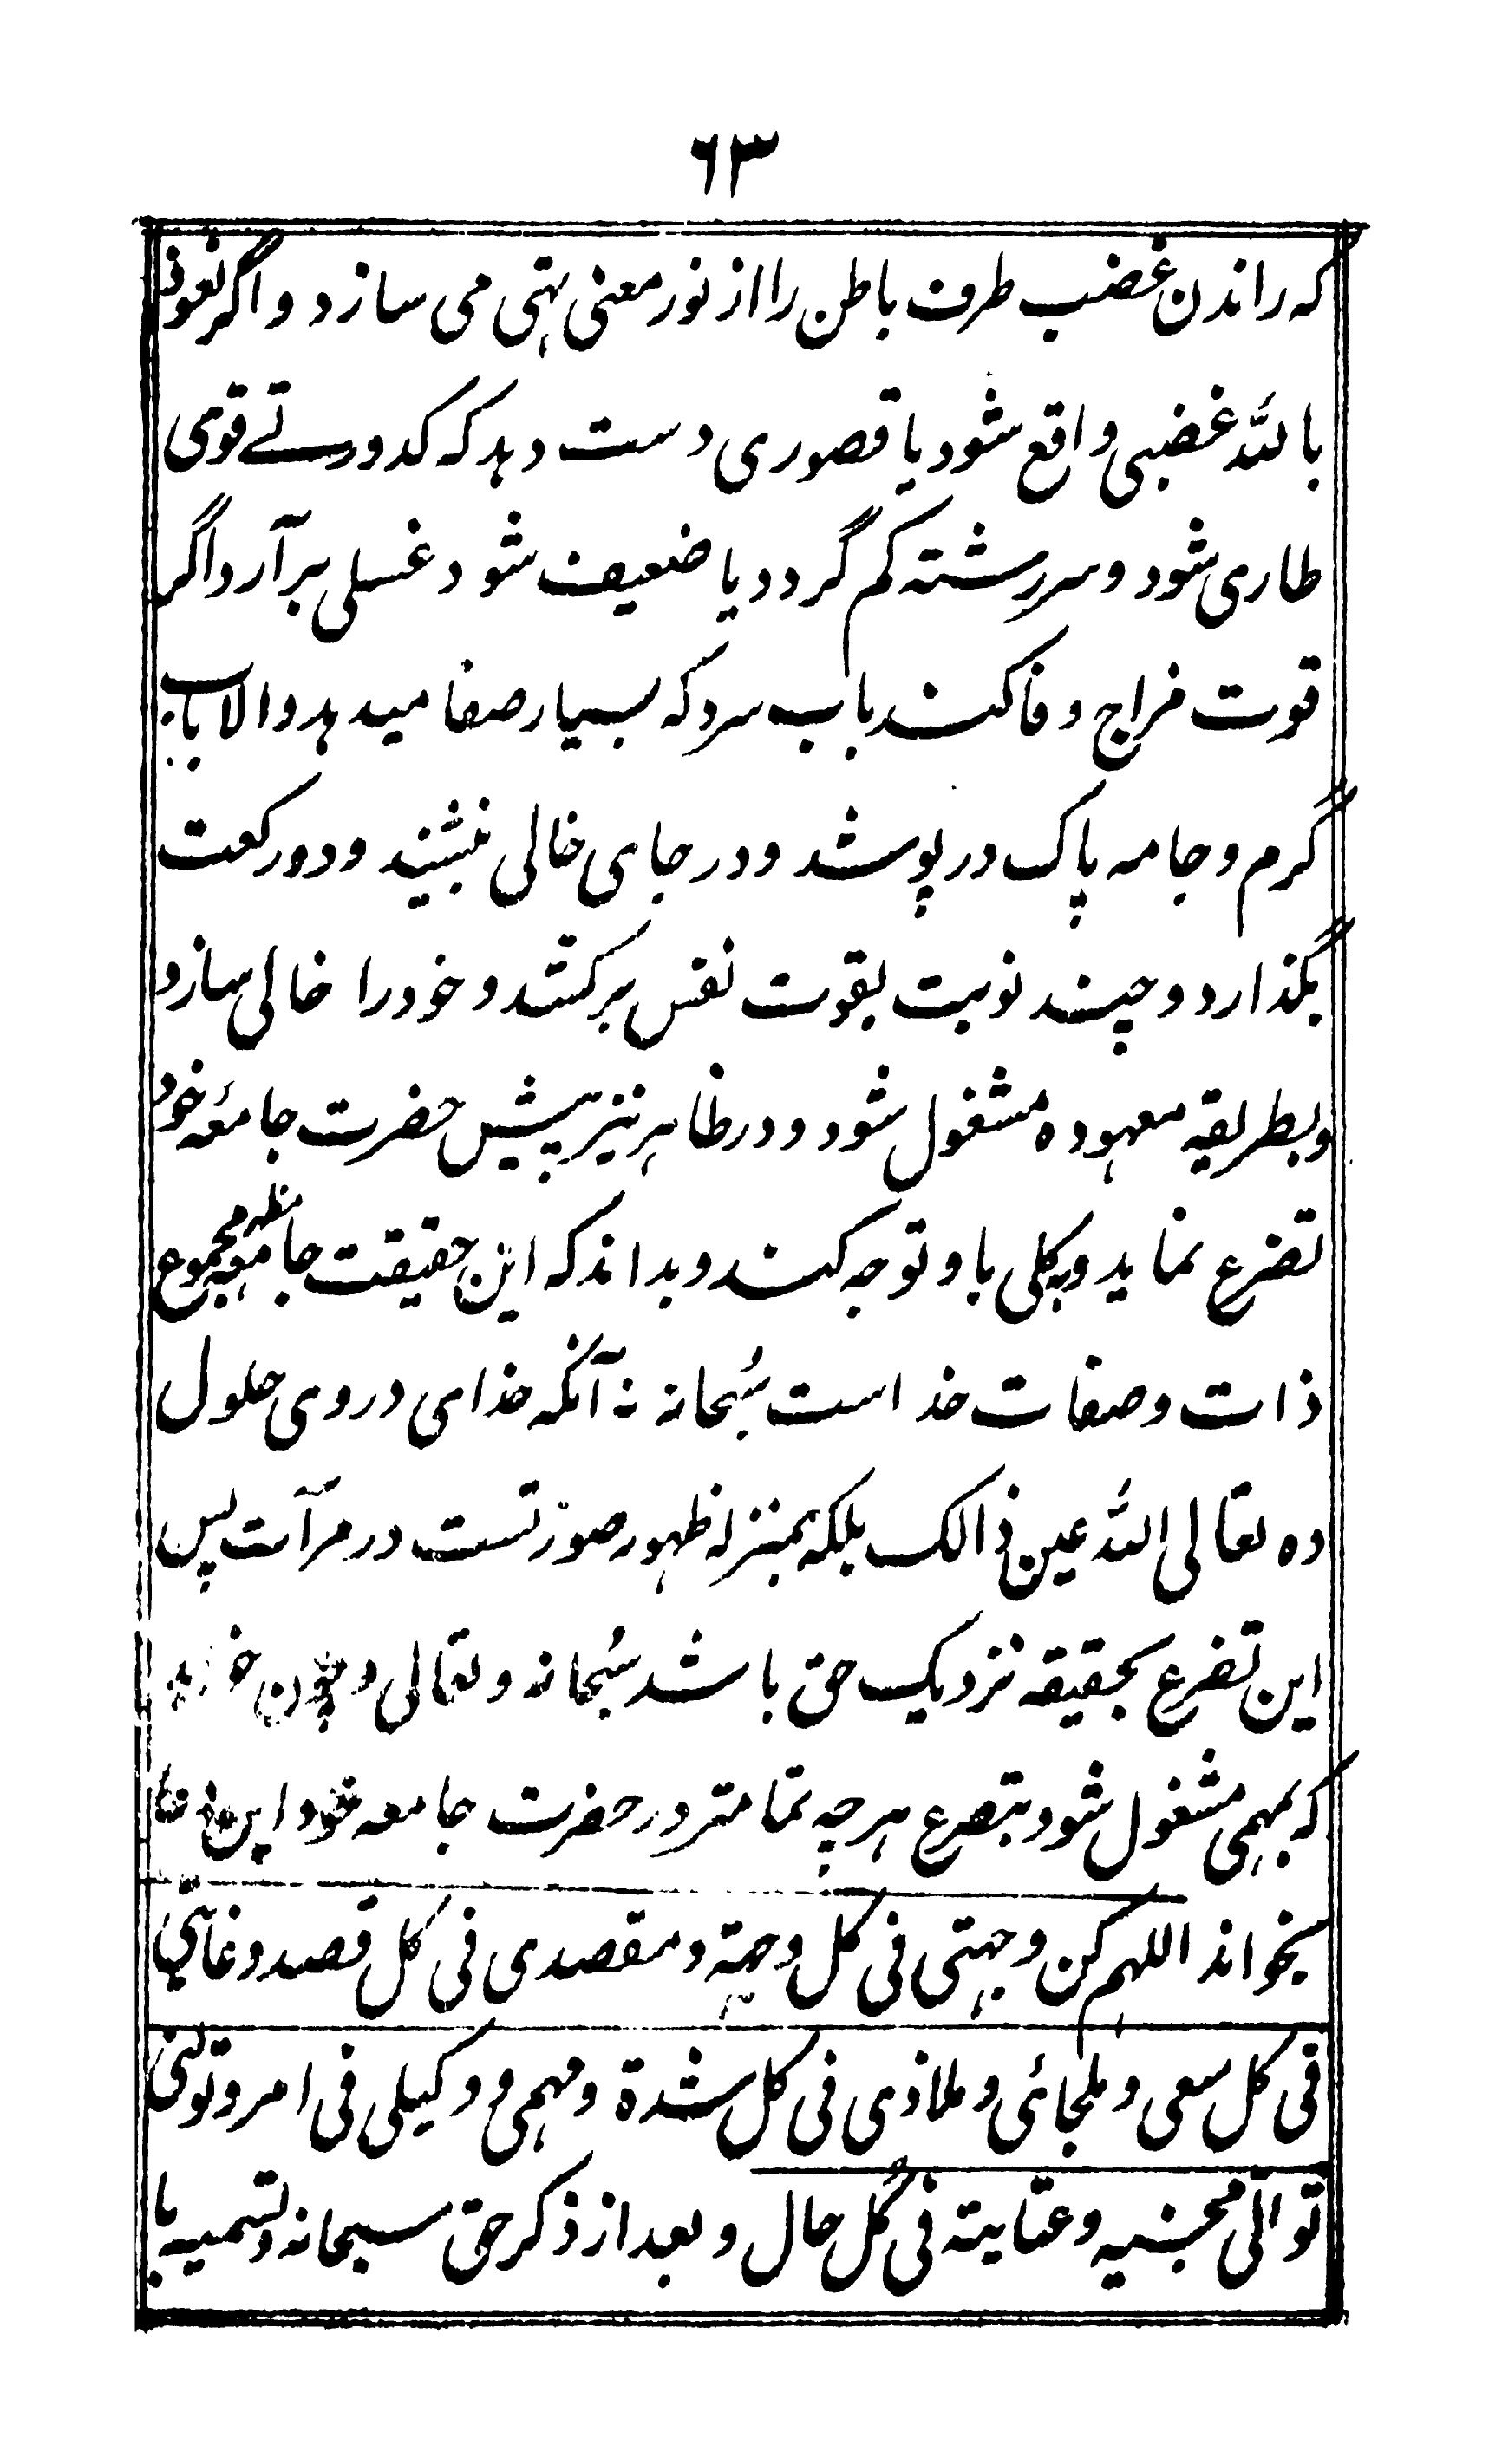 ٦٣
که راندن غضب طرف باطن را از نور معنی تہی می سازد و اگر نعوذ
باللّٰه غضبی واقع شود یا قصوری دست دہد که کدورتے قوی
طاری شود و سررشته کم گردد یا ضعیف شود غسلی برآرد اگر
قوت مزاج وفا کند باب سرد که بسیار صفا میدہد والا باب
گرم و جامه پاک در پوشد و در جای خالی بنشیند و دو رکعت
بگذارد و چند نوبت بقوت نفس برکشد و خود را خالی سازد
و بطریقه معہوده مشغول شود و در ظاہر نیز پیش حضرت جامعهٔ خود
تضرع نماید و بکلی باو توجه کند و بداند که این حقیقت جامعه مظہر مجموع
ذات و صفات خداست سُبحانه نه آنکه خدای در وی حلول
ده تعالی اللّٰه عین ذالک بلکه بمنزله ظہور صورتست در مرآت پس
این تضرع بحقیقه نزدیک حق باشد سُبحانه و تعالی و چون
که بمہمی مشغول شود بتضرع ہرچه تمامتر در حضرت جامعه خود این
بخواند اللہم کن وجہتی فی کل وجہة و مقصدی فی کل قصد و غایتی
فی کل سعی و ملجائی و ملاذی فی کل شدة و مہمی و وکیلی فی امر و تولنی
توالی محبتیه و عنایته فی کُل حال و بعد از ذکر حق سبحانه و تسمیه با